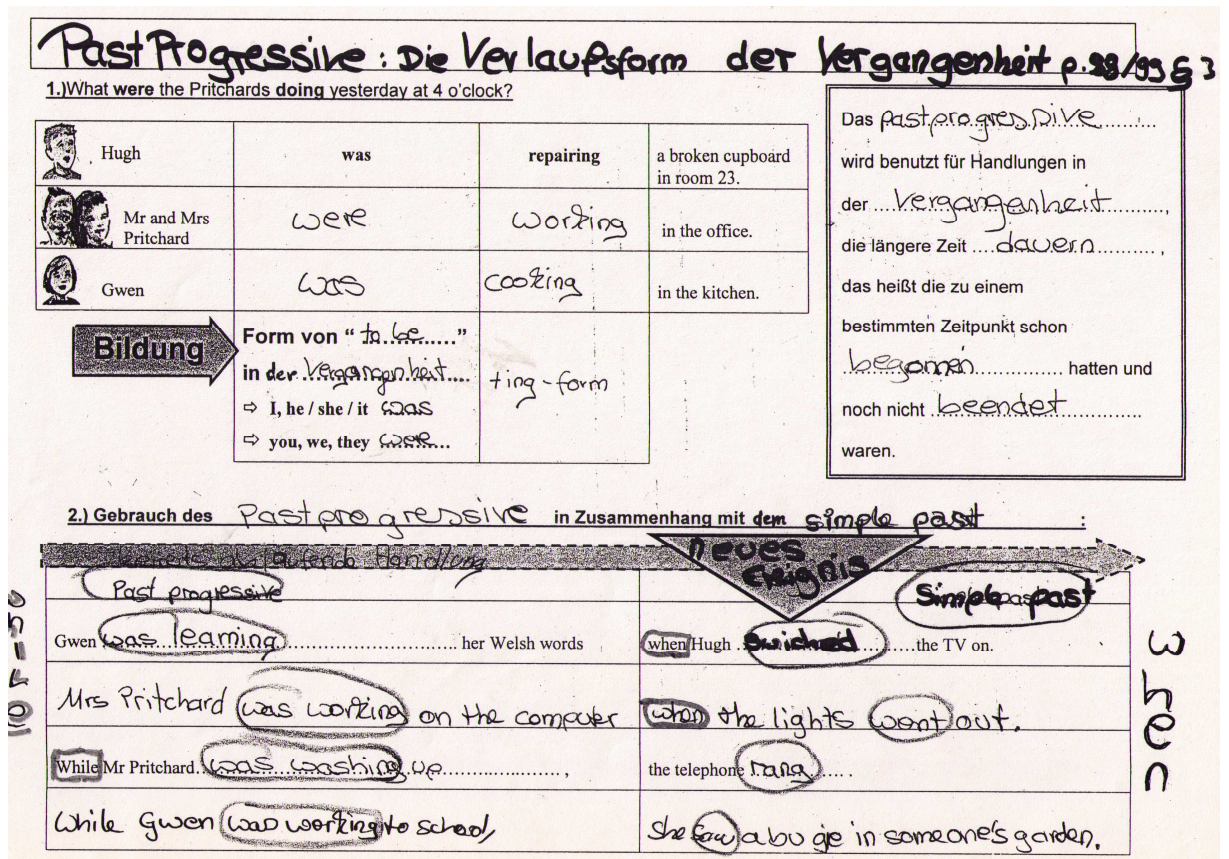 Past Progressive: Die Verlaufsform der Vergangenheit p. 98/99 § 3
1.)What were the Pritchards doing yesterday at 4 o'clock?
Hugh was repairing a broken cupboard
in room 23.
Mr and Mrs
Pritchard were working in the office.
Gwen was cooking in the kitchen.
Bildung
Form von " to be "
in der Vergangenheit
⇨ I, he / she / it was
⇨ you, we, they were
+ ing-form
Das past progressive
wird benutzt für Handlungen in
der Vergangenheit,
die längere Zeit dauern,
das heißt die zu einem
bestimmten Zeitpunkt schon
begonnen hatten und
noch nicht beendet
waren.
2.) Gebrauch des Past progressive in Zusammenhang mit dem simple past :
ablaufende Handlung
neues
Ereignis
Past progressive
Simple past
Gwen was learning her Welsh words when Hugh swiched the TV on.
Mrs Pritchard was working on the computer when the lights went out.
While Mr Pritchard was washing up, the telephone rang.
While Gwen was working to school, she saw a in someone's garden.
when